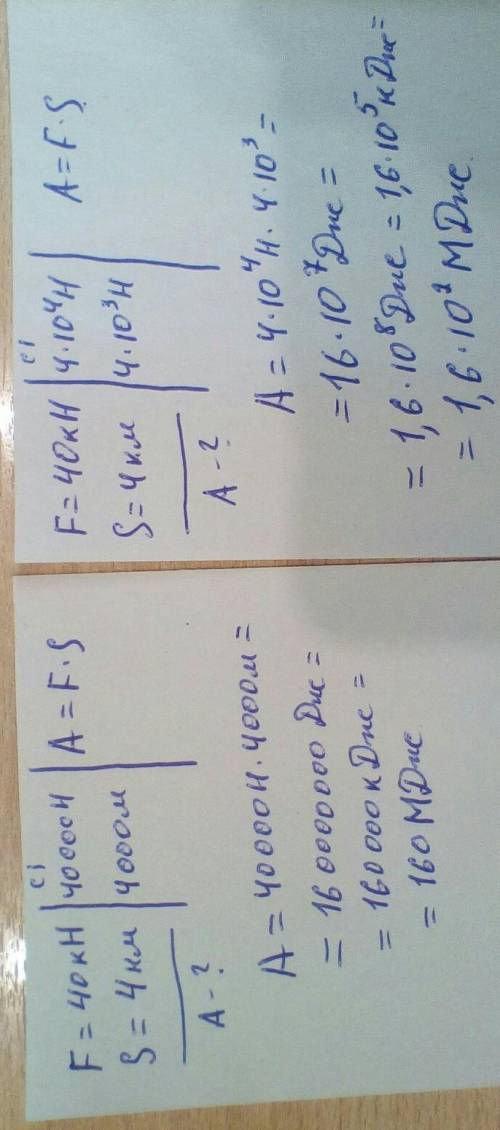 СІ
F = 40кН | 40000Н | A = F·S
S = 4км | 4000м
A - ?
A = 40000Н·4000м =
= 160000000 Дж =
= 160 000 кДж =
= 160 МДж
СІ
F = 40кН | 4·10⁴Н | A = F·S
S = 4км | 4·10³Н
A - ?
A = 4·10⁴Н·4·10³ =
= 16·10⁷Дж =
= 1,6·10⁸Дж = 1,6·10⁵кДж =
= 1,6·10² МДж.